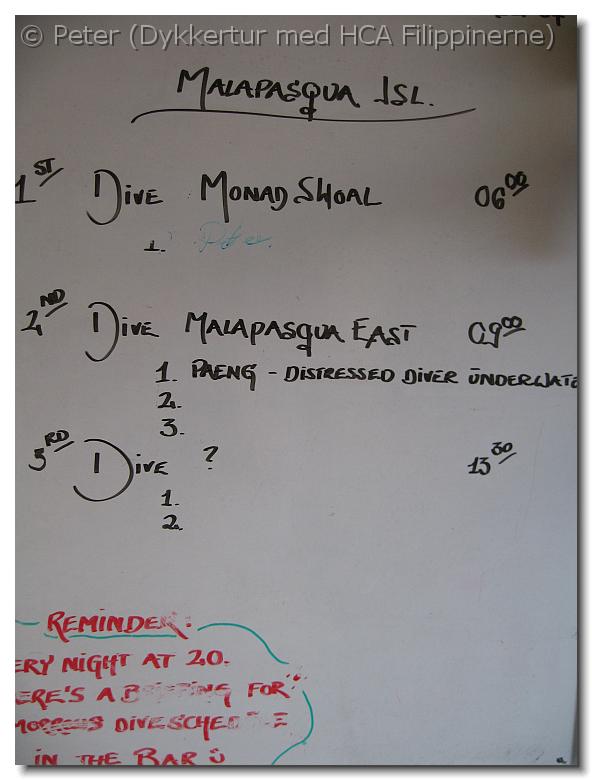 © Peter (Dykkertur med HCA Filippinerne)
MALAPASQUA ISL.
1ST DIVE MONAD SHOAL 06 00
1. Peter.
2ND DIVE MALAPASQUA EAST 09 00
1. PAENG - DISTRESSED DIVER UNDERWATE
2.
3.
3RD DIVE ? 13 30
1.
2.
REMINDER:
ERY NIGHT AT 20.
ERE'S A BRIEFING FOR
DIVESCHEDULE
IN THE BAR